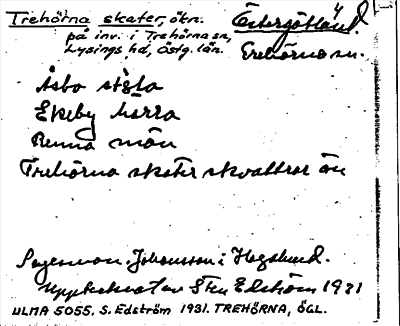 Trehörna skater, ökn.
på inv. i Trehörna sn,
Lysings hd, Östg. län.
Östergötland.
Trehörna sn.
Åsbo stöta
Ekeby herra
Renna män
Trehörna skater skvattrar än
Sagesman. Johansson i Hagalund.
Upptecknat av Sten Edström 1931
ULMA 5055. S. Edström 1931. TREHÖRNA, ÖGL.